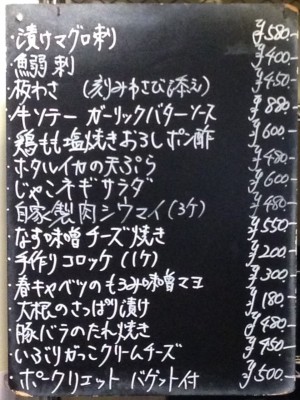 ・漬けマグロ刺 ¥580.-
・鰯刺 ¥400.-
・板わさ (刻みわさび添え) ¥450.-
・牛ソテー ガーリックバターソース ¥880.-
・鶏もも塩焼きおろしポン酢 ¥600.-
・ホタルイカの天ぷら ¥480.-
・じゃこネギサラダ ¥600.-
・自家製肉シウマイ(3ケ) ¥480.-
・なすの味噌チーズ焼き ¥550.-
・手作りコロッケ(1ケ) ¥200.-
・春キャベツのもろみ味噌マヨ ¥300.-
・大根のさっぱり漬け ¥180.-
・豚バラのたれ焼き ¥480.-
・いぶりがっこクリームチーズ ¥450.-
・ポークリエット バゲット付 ¥500.-